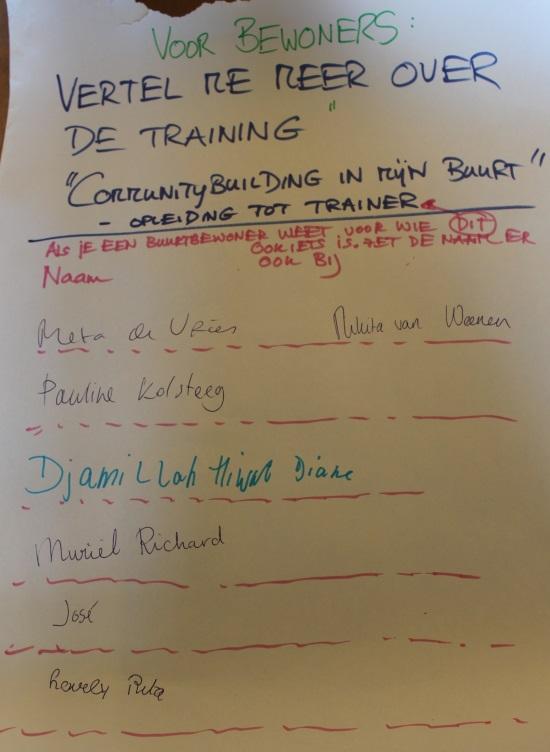 VOOR BEWONERS:
VERTEL ME MEER OVER
DE TRAINING "
"COMMUNITYBUILDING IN MIJN BUURT"
- OPLEIDING TOT TRAINER
ALS JE EEN BUURTBEWONER WEET VOOR WIE DIT
OOK IETS IS. ZET DE NAAM ER
OOK BIJ
Naam
Meta de Vries Nikita van Weenen
Pauline Kolsteeg
Djamillah Diane
Muriël Richard
José
Lovely Rita